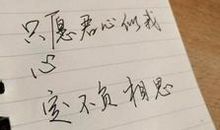 只愿君心似我
心
定不负相思